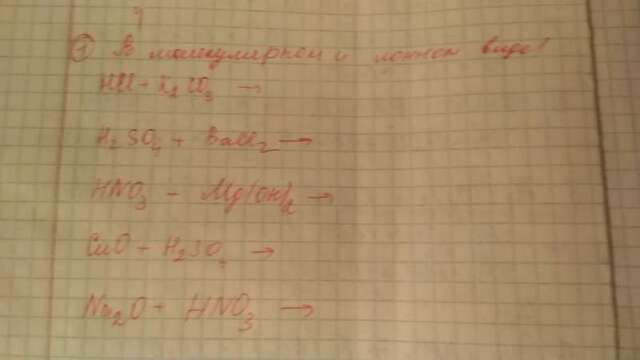 ① В молекулярном и ионном виде!
HCl + K₂CO₃ →
H₂SO₄ + BaCl₂ →
HNO₃ + Mg(OH)₂ →
CuO + H₂SO₄ →
Na₂O + HNO₃ →